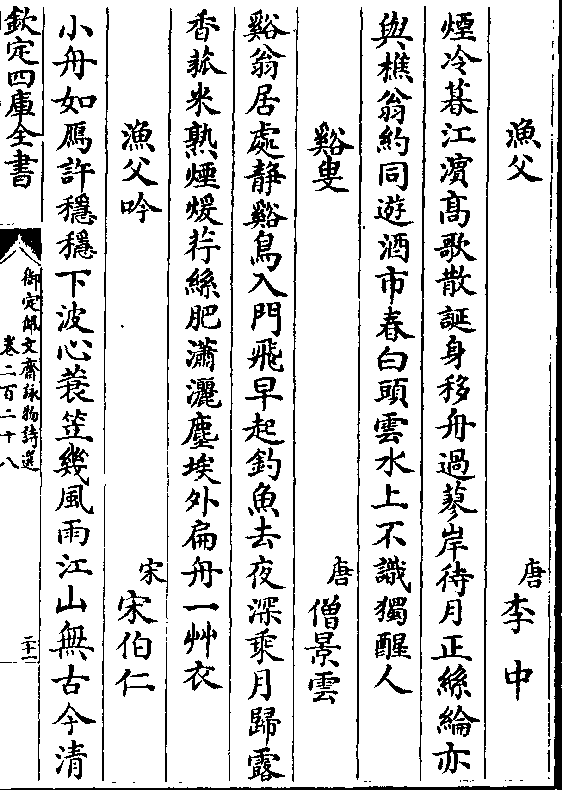 漁父　唐李中
煙冷暮江濱高歌散誕身移舟過蓼岸待月正絲綸亦
與樵翁約同遊酒市春白頭雲水上不識獨醒人
谿叟　唐僧景雲
谿翁居處靜谿鳥入門飛早起釣魚去夜深乘月歸露
香菰米熟煙煖荇絲肥瀟灑塵埃外扁舟一艸衣
漁父吟　宋宋伯仁
小舟如鴈許穩穩下波心蓑笠幾風雨江山無古今清
欽定四庫全書
御定佩文齋詠物詩選
卷二百二十八
二十一